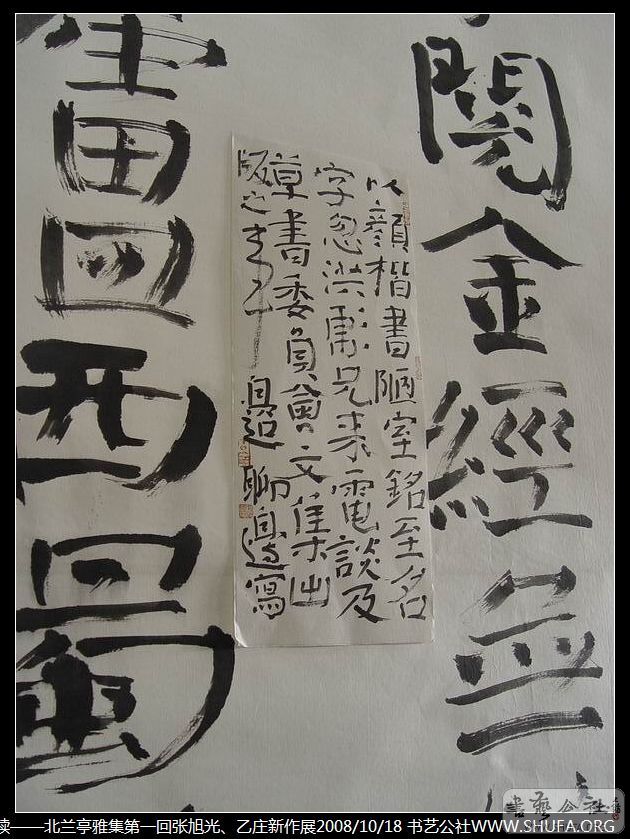 閱金經無
廬西蜀
以顏楷書陋室銘至名
字忽洪彪兄来電談及
草書委員會文集出
版之事
聊寫
書藝公社
读——北兰亭雅集第一回张旭光、乙庄新作展2008/10/18 书艺公社WWW.SHUFA.ORG